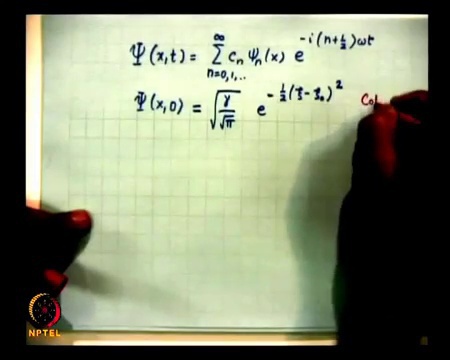 Ψ(x,t) = ∑_{n=0,1,..}^{∞} c_n ψ_n(x) e^{-i(n+½)ωt}
Ψ(x,0) = √(γ/√π) e^{-½(ξ-ξ_0)²}
NPTEL